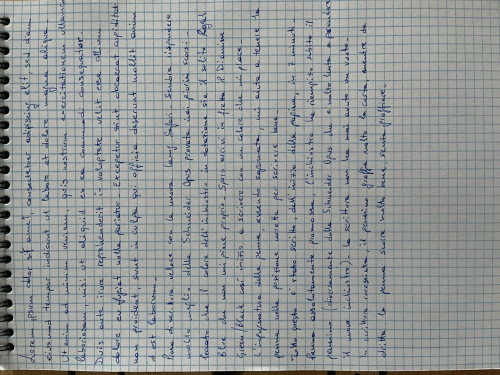 Lorem ipsum dolor sit amet, consectetur adipisci elit, sed diam
eiusmod tempor incidunt ut labore et dolore magna aliqua.
Ut enim ad minim veniam, quis nostrum exercitationem ullamco
laboriosam, nisi ut aliquid ex ea commodi consequatur.
Duis aute irure reprehenderit in voluptate velit esse cillum
dolore eu fugiat nulla pariatur. Excepteur sint obcaecat cupiditat
non proident, sunt in culpa qui officia deserunt mollit anim
id est laborum.
Prova di scrittura veloce con la nuova Lamy Safari. Sembra rispondere
molto meglio della Schneider Opus provata nei giorni scorsi.
Peccato che il colore dell'inchiostro in dotazione sia il solito Royal
Blue che non mi piace proprio. Spero arrivi in fretta il Diamine
Green/Black così inizio a scrivere con un colore che mi piace.
L'impugnatura della penna, essendo sagomata, mi aiuta a tenere la
penna nella posizione corretta per scrivere bene.
Tutto questo è stato scritto, dall'inizio della pagina, in 7 minuti.
Penna assolutamente promossa. L'inchiostro ha riempito subito il
pennino (diversamente dalla Schneider Opus che è molto lenta a prendere
il nuovo inchiostro). La scrittura non ha mai avuto un vuoto.
La scrittura rovesciata, il pennino graffia molto la carta, mentre da
dritta la penna scorre molto bene senza graffiare.